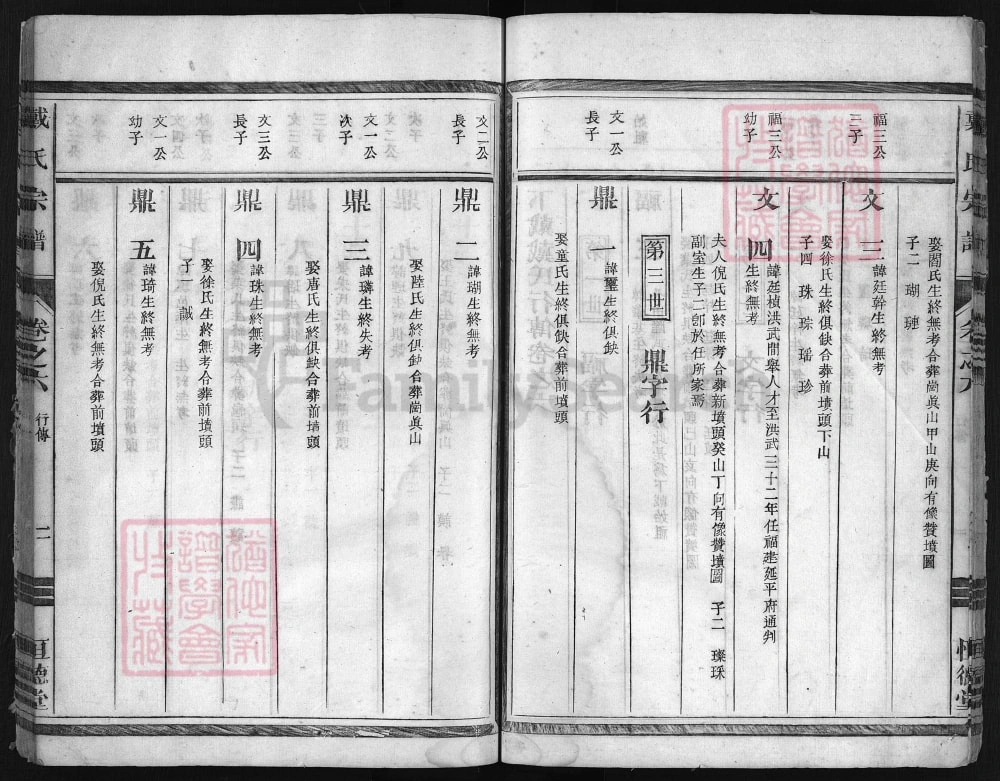 娶閻氏生終無考合葬崗眞山甲山庚向有像贊墳圖
子二 瑚 璉
福三公
三子
文三
諱廷幹生終無考
娶徐氏生終俱缺合葬前墳頭下山
子四 珠 琮 瑶 珍
福三公
幼子
文四
諱廷楨洪武間舉人才至洪武三十二年任福建延平府通判
生終無考
夫人倪氏生終無考合葬新墳頭癸山丁向有像贊墳圖 子二 璨 琜
副室生子二卽於任所家焉
第三世 鼎字行
文一公
長子
鼎一
諱璽生終俱缺
娶童氏生終俱缺合葬前墳頭
文二公
長子
鼎二
諱瑚生終無考
娶陸氏生終俱缺合葬崗眞山
文一公
次子
鼎三
諱璘生終失考
娶唐氏生終俱缺合葬前墳頭
文三公
長子
鼎四
諱珠生終無考
娶徐氏生終無考合葬前墳頭
子一 誠
文一公
幼子
鼎五
諱琦生終無考
娶倪氏生終無考合葬前墳頭
戴氏宗譜
卷之六
行傳
二
恒德堂
FamilySearch
猶他家譜學會收藏
猶他家譜學會收藏